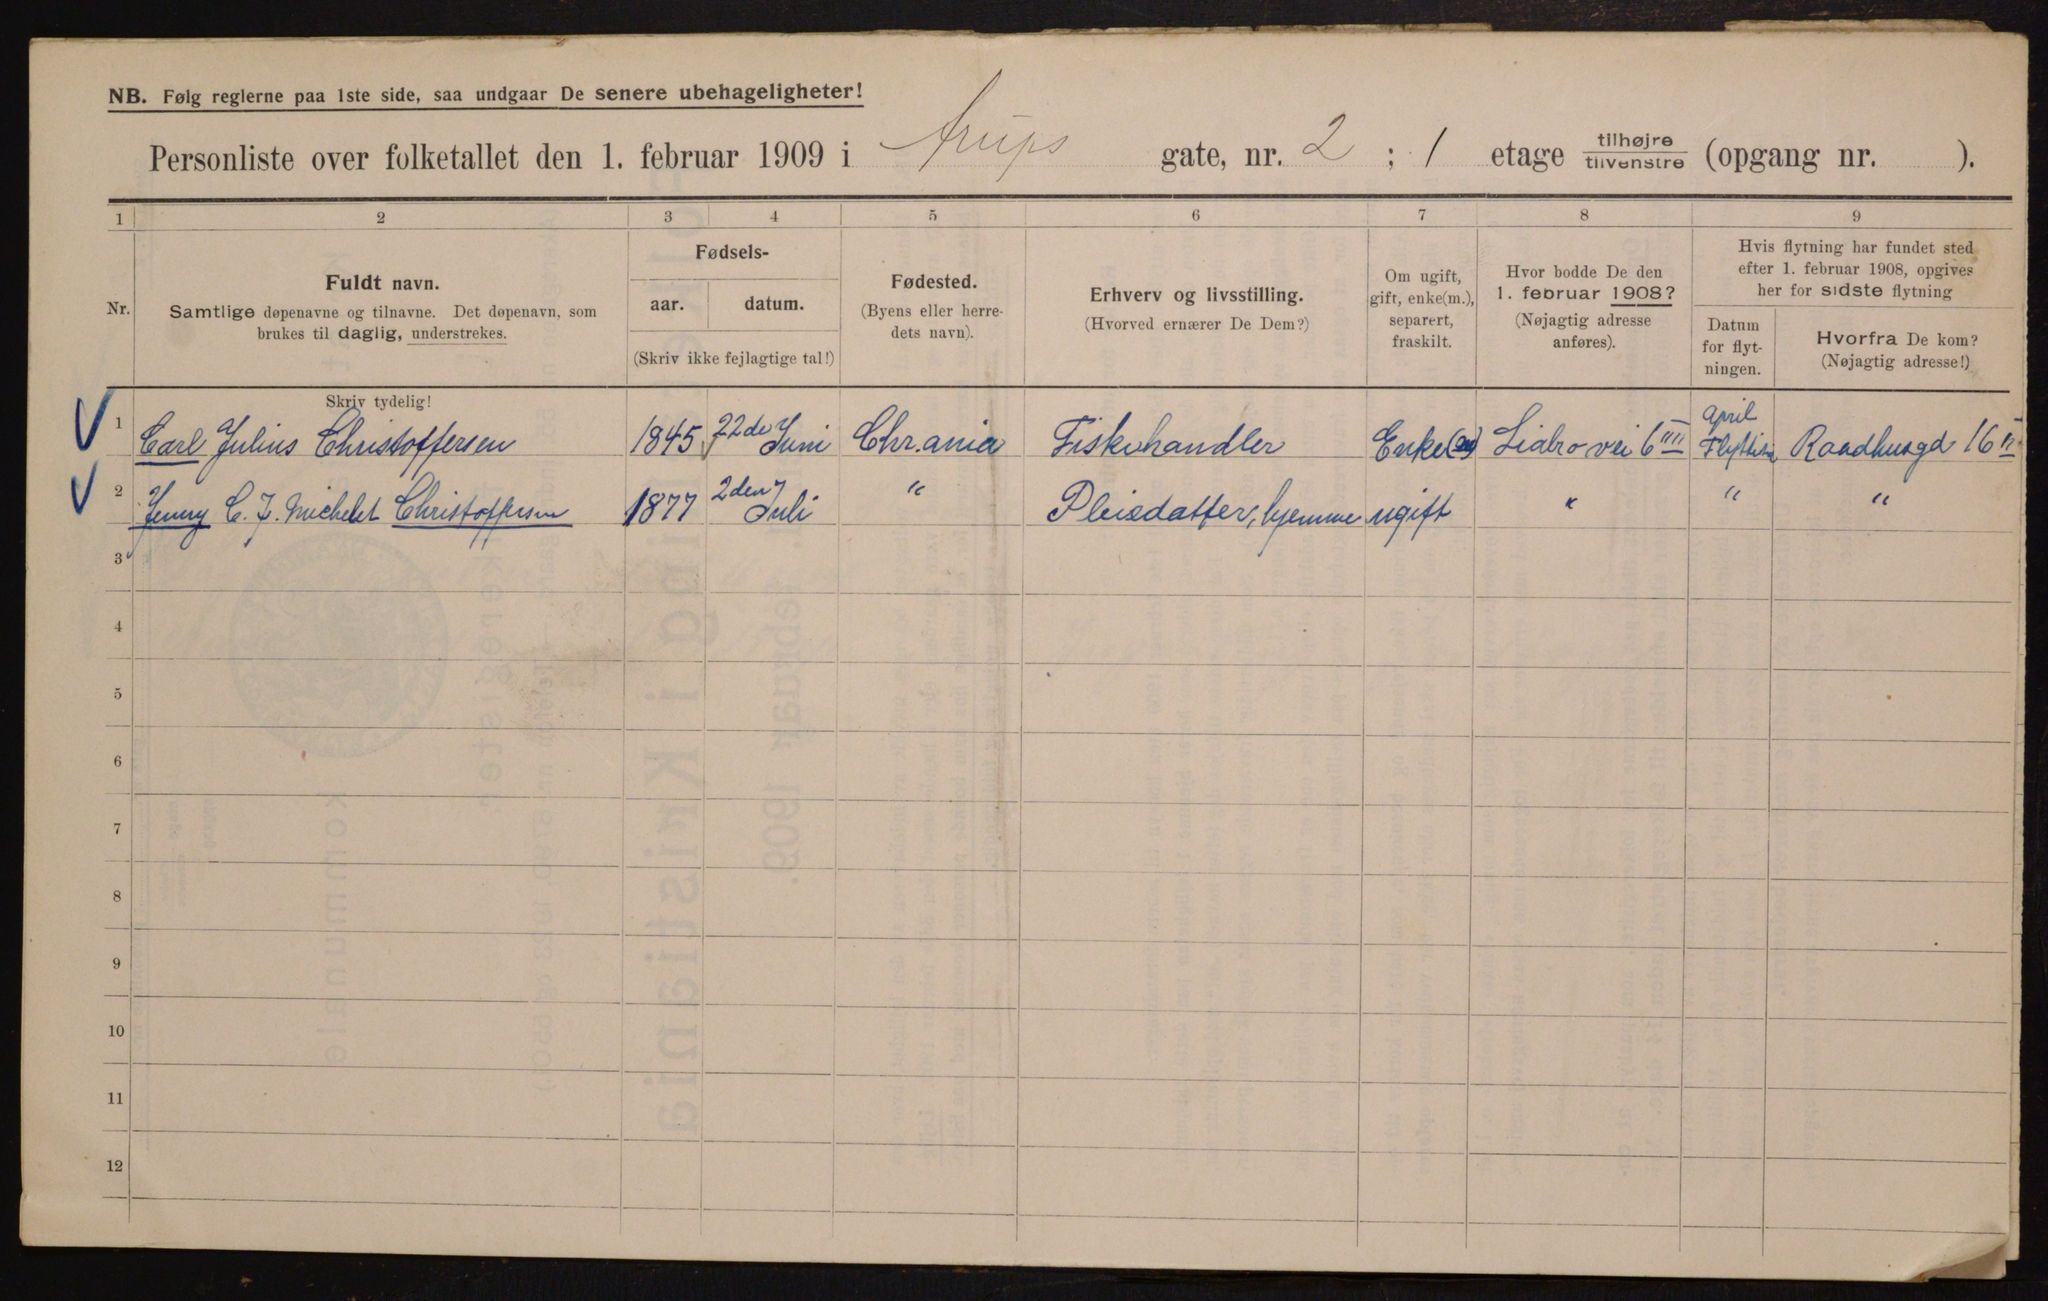 NB. Følg reglerne paa 1ste side, saa undgaar De senere ubehageligheter!
Personliste over folketallet den 1. februar 1909 i Arups gate, nr. 2 ; 1 etage tilhøjre tilvenstre (opgang nr. ).
1 2 3 4 5 6 7 8 9
Nr.
Fuldt navn.
Samtlige døpenavne og tilnavne. Det døpenavn, som
brukes til daglig, understrekes.
Skriv tydelig!
Fødsels-
aar. datum.
(Skriv ikke fejlagtige tal!)
Fødested.
(Byens eller herre-
dets navn).
Erhverv og livsstilling.
(Hvorved ernærer De Dem?)
Om ugift,
gift, enke(m.),
separert,
fraskilt.
Hvor bodde De den
1. februar 1908?
(Nøjagtig adresse
anføres).
Hvis flytning har fundet sted
efter 1. februar 1908, opgives
her for sidste flytning
Datum
for flyt-
ningen.
Hvorfra De kom?
(Nøjagtig adresse!)
1 Carl Julius Christoffersen 1845 22de Juni Chr.ania Fiskehandler Enke(m) 6 April Raadhusgd 16 II
2 Jenny C. J. Michelet Christoffersen 1877 2den Juli " Pleiedatter, hjemme ugift " " "
3
4
5
6
7
8
9
10
11
12